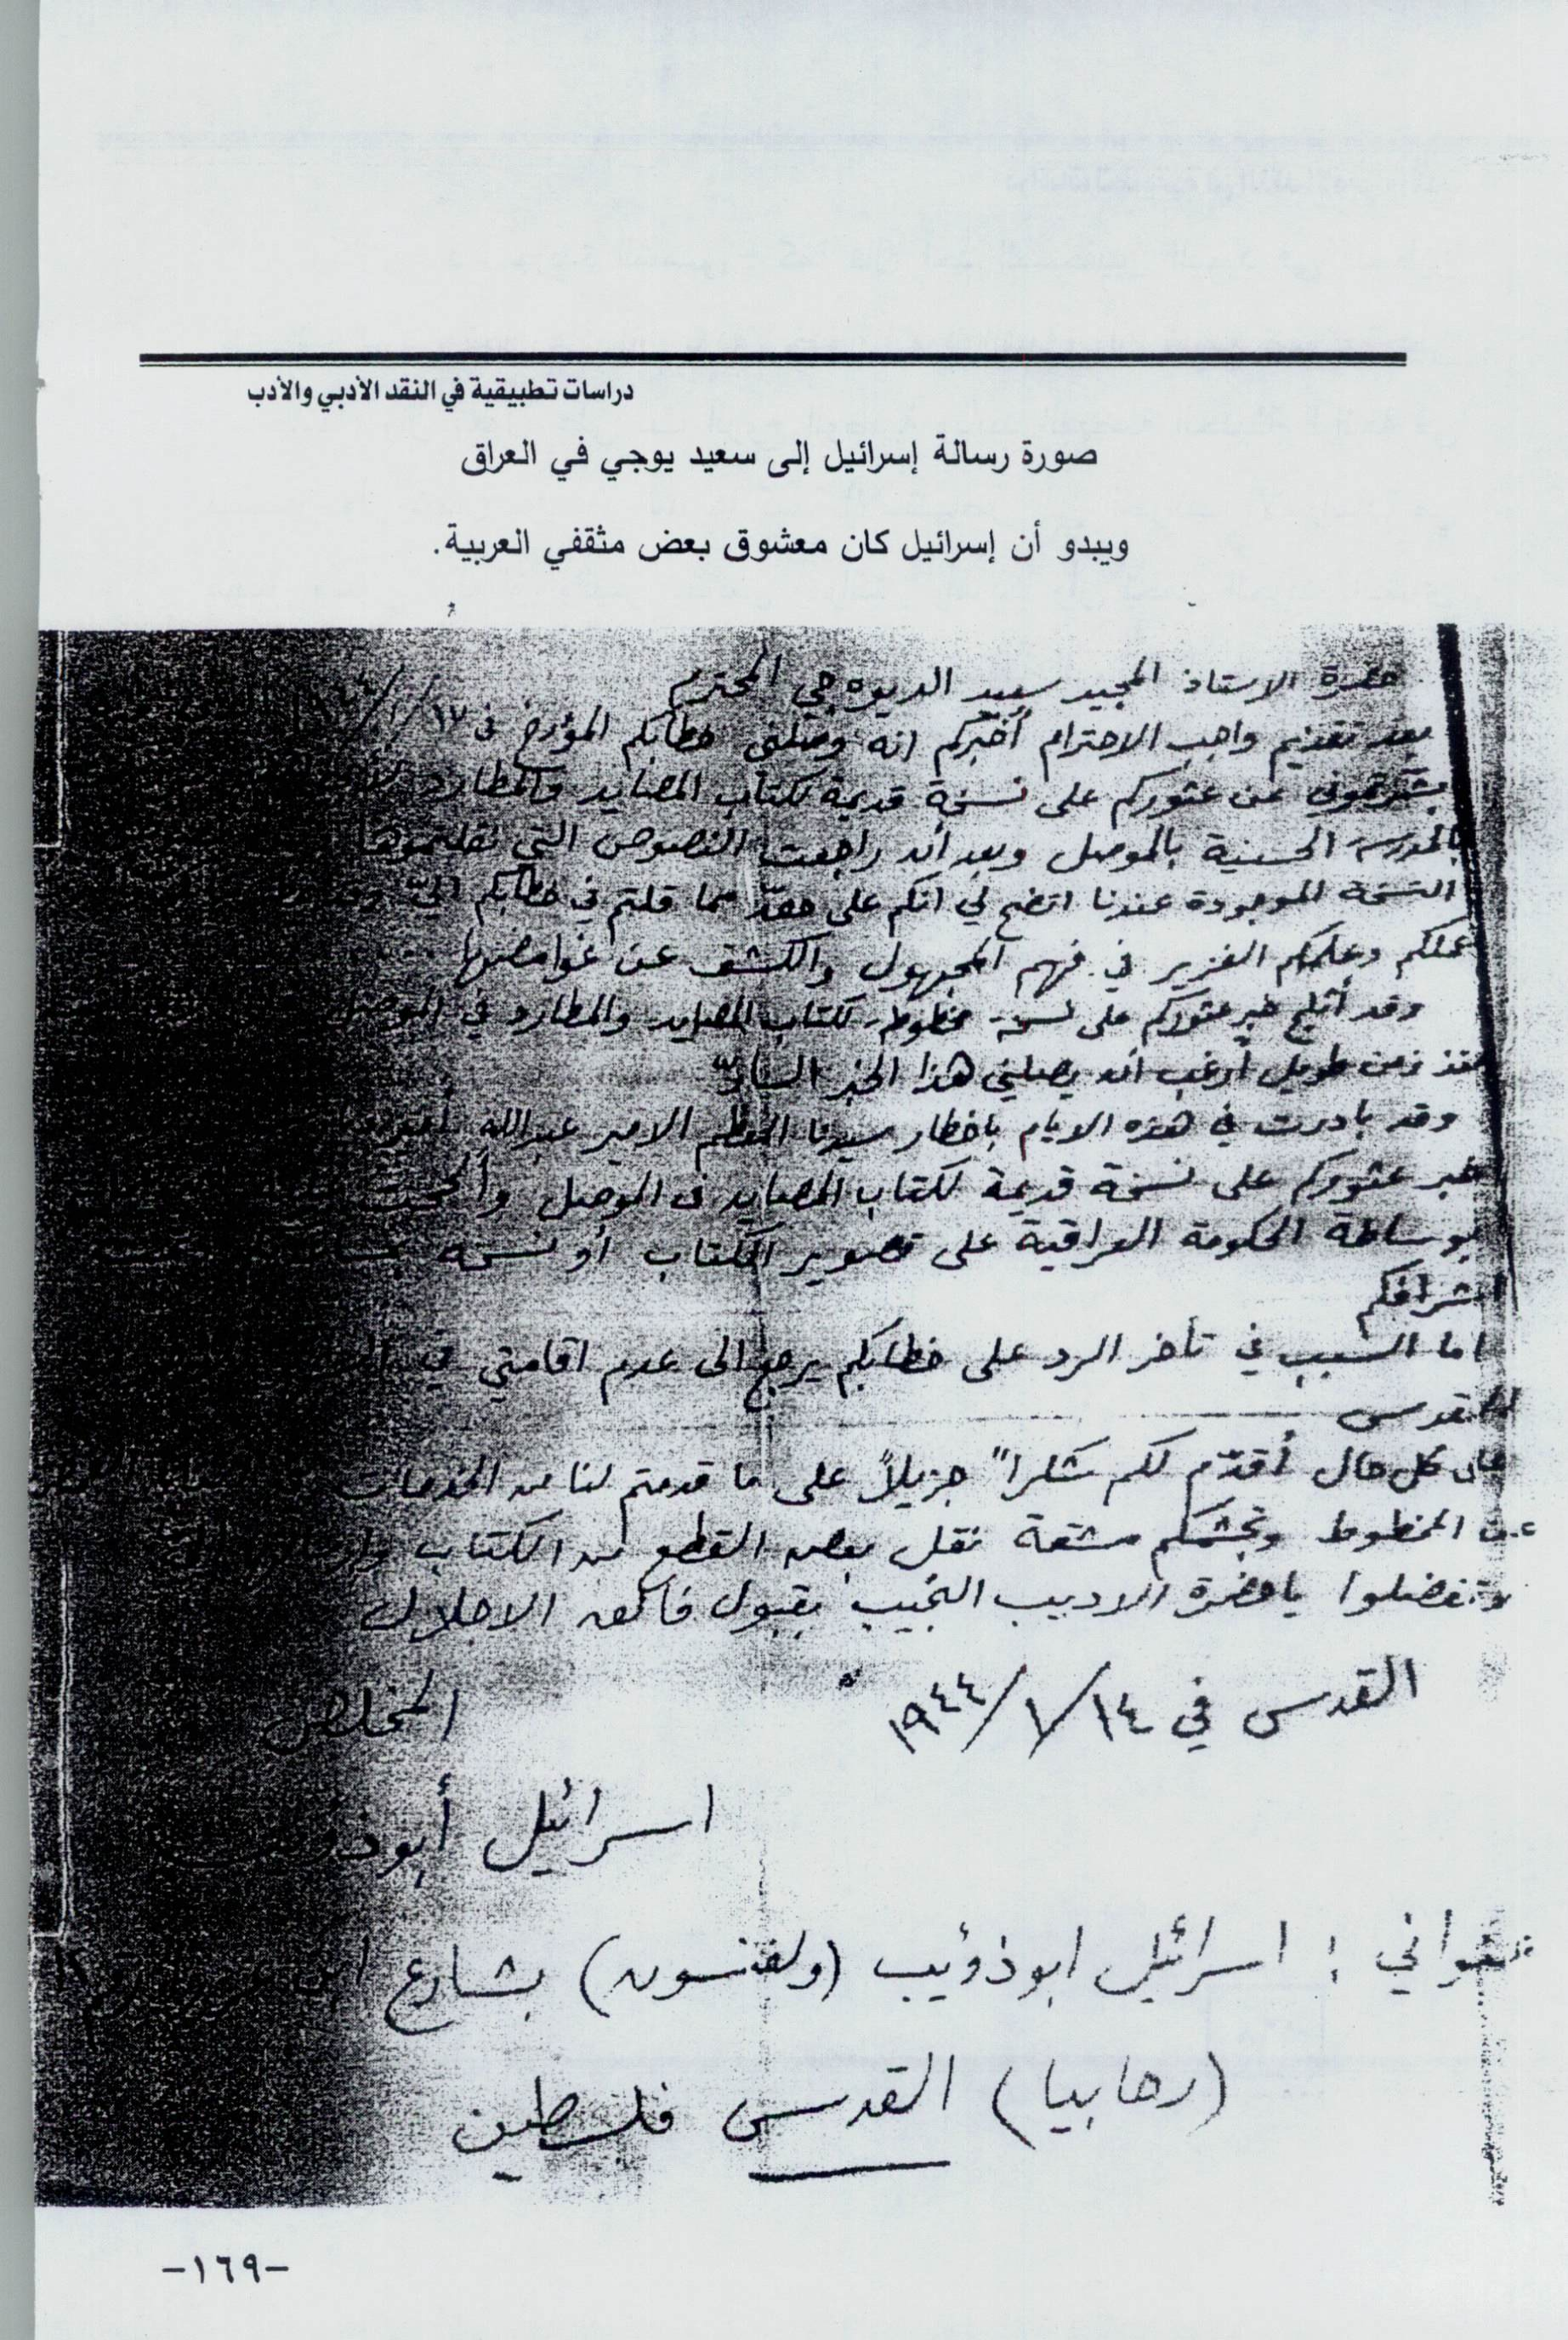 دراسات تطبيقية في النقد الأدبي والأدب
صورة رسالة إسرائيل إلى سعيد يوجي في العراق
ويبدو أن إسرائيل كان معشوق بعض مثقفي العربية.
حضرة الاستاذ المجيد سعيد الديوه جي المحترم
بعد تقديم واجب الاحترام أخبركم انه وصلني خطابكم المؤرخ في ١٧/١/
عن عثوركم على نسخة قديمة لكتاب المصايد والمطارد
بالمدرسة الحسينية بالموصل وبعد ان راجعت النصوص التي نقلتموها
النسخة الموجودة عندنا اتضح لي انكم على حقّ مما قلتم في خطابكم اليّ
عملكم وعلمكم الغزير في فهم المجهول والكشف عن غوامضها
وقد أثلج خبر عثوركم على نسخة مخطوطة لكتاب المصايد والمطارد في
منذ زمن طويل أرغب ان يصلني هذا الخبر السارّ
وقد بادرت في هذه الايام باخطار سيدنا المعظم الامير عبدالله
خبر عثوركم على نسخة قديمة لكتاب المصايد في الموصل وألححت
بوساطة الحكومة العراقية على تصوير الكتاب او نسخه
اشرافكم
اما السبب في تأخر الرد على خطابكم يرجع الى عدم اقامتي في
القدس
على كل حال أقدّم لكم شكراً جزيلاً على ما قدمتم لنا من الخدمات
عن المخطوط وتجشمكم مشقة نقل بعض القطع من الكتاب
وتفضلوا يا حضرة الاديب النجيب بقبول فائق الاجلال
القدس في ١٤/١/١٩٤٤
المخلص
اسرائيل أبو
عنواني : اسرائيل ابو ذؤيب (ولفنسون) بشارع
(رحابيا) القدس فلسطين
-١٦٩-